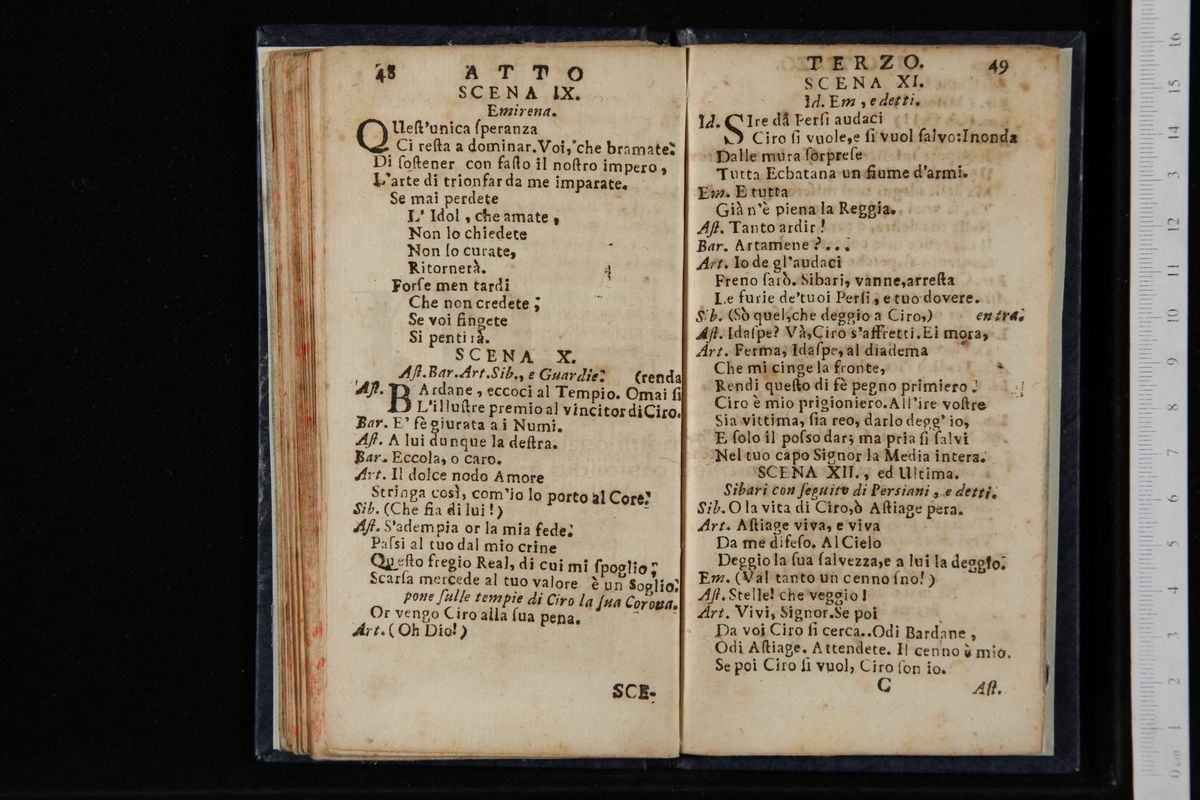 48 ATTO
SCENA IX.
Emirena.
QUeſt'unica ſperanza
Ci reſta a dominar. Voi, che bramate
Di ſoſtener con faſto il noſtro impero,
L'arte di trionfar da me imparate.
Se mai perdete
L' Idol, che amate,
Non lo chiedete
Non lo curate,
Ritornerà.
Forſe men tardi
Che non credete;
Se voi fingete
Si pentirà.
SCENA X.
Aſt. Bar. Art. Sib., e Guardie. (renda
Aſt. BArdane, eccoci al Tempio. Omai ſi
L'illuſtre premio al vincitor di Ciro.
Bar. E' fè giurata a i Numi.
Aſt. A lui dunque la deſtra.
Bar. Eccola, o caro.
Art. Il dolce nodo Amore
Stringa così, com'io lo porto al Core.
Sib. (Che fia di lui!)
Aſt. S'adempia or la mia fede.
Paſsi al tuo dal mio crine
Queſto fregio Real, di cui mi ſpoglio;
Scarſa mercede al tuo valore è un Soglio.
pone ſulle tempie di Ciro la ſua Corona.
Or vengo Ciro alla ſua pena.
Art. (Oh Dio!)
SCE-
TERZO. 49
SCENA XI.
Id. Em, e detti.
Id. SIre da Perſi audaci
Ciro ſi vuole, e ſi vuol ſalvo: Inonda
Dalle mura ſorpreſe
Tutta Ecbatana un fiume d'armi.
Em. E tutta
Già n'è piena la Reggia.
Aſt. Tanto ardir!
Bar. Artamene?...
Art. Io de gl'audaci
Freno ſarò. Sibari, vanne, arreſta
Le furie de' tuoi Perſi, e tuo dovere.
Sib. (Sò quel, che deggio a Ciro,) entra.
Aſt. Idaſpe? Và, Ciro s'affretti. Ei mora,
Art. Ferma, Idaſpe, al diadema
Che mi cinge la fronte,
Rendi queſto di fè pegno primiero.
Ciro è mio prigioniero. All'ire voſtre
Sia vittima, ſia reo, darlo degg' io,
E ſolo il poſso dar; ma pria ſi ſalvi
Nel tuo capo Signor la Media intera.
SCENA XII., ed Ultima.
Sibari con ſeguito di Perſiani, e detti.
Sib. O la vita di Ciro, ò Aſtiage pera.
Art. Aſtiage viva, e viva
Da me difeſo. Al Cielo
Deggio la ſua ſalvezza, e a lui la deggio.
Em. (Val tanto un cenno ſno!)
Aſt. Stelle! che veggio!
Art. Vivi, Signor. Se poi
Da voi Ciro ſi cerca.. Odi Bardane,
Odi Aſtiage. Attendete. Il cenno è mio.
Se poi Ciro ſi vuol, Ciro ſon io.
C Aſt.